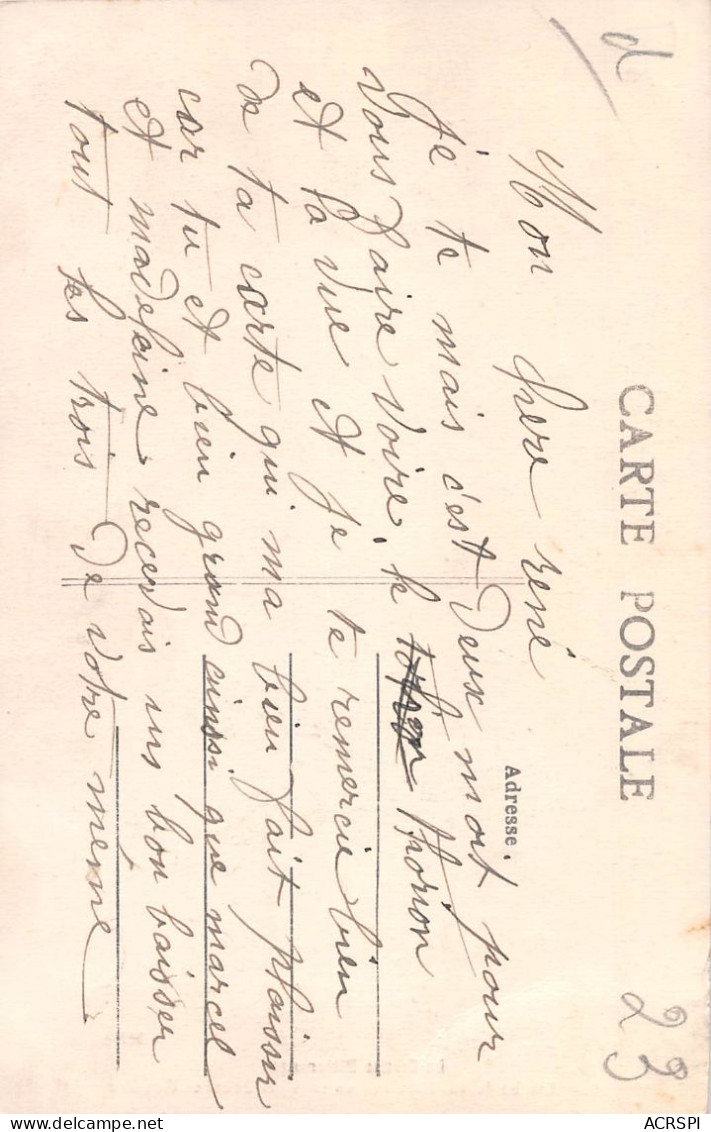 CARTE POSTALE
d
23
Adresse.
Mon chere rené
Je te mais c'est Deux mort pour
vous faire voire le Thorion
et ta vue et Je te remercie bien
de ta carte qui ma bien fait plaisir
car tu et bien grand ainsi que marcel
et madeleine recevais uns bon baisser
tout les trois De votre mémé
ACRSPI